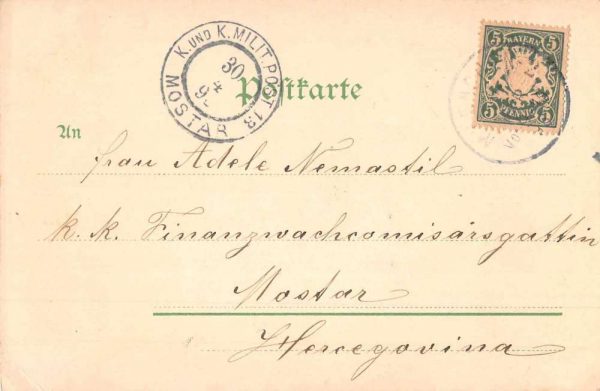 K. UND K. MILIT. POST 13
30
4
9
MOSTAR
Postkarte
5 BAYERN 5
5 PFENNIG 5
An
Frau Adele Nemastil
k. k. Finanzwachcomisärsgattin
Mostar
Hercegovina